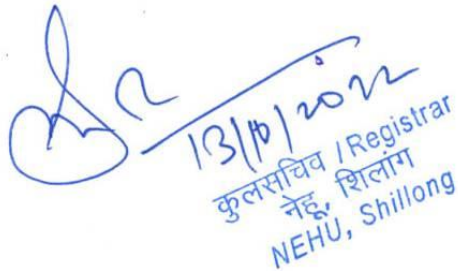 13/10/2022
कुलसचिव / Registrar
नेहू, शिलांग
NEHU, Shillong